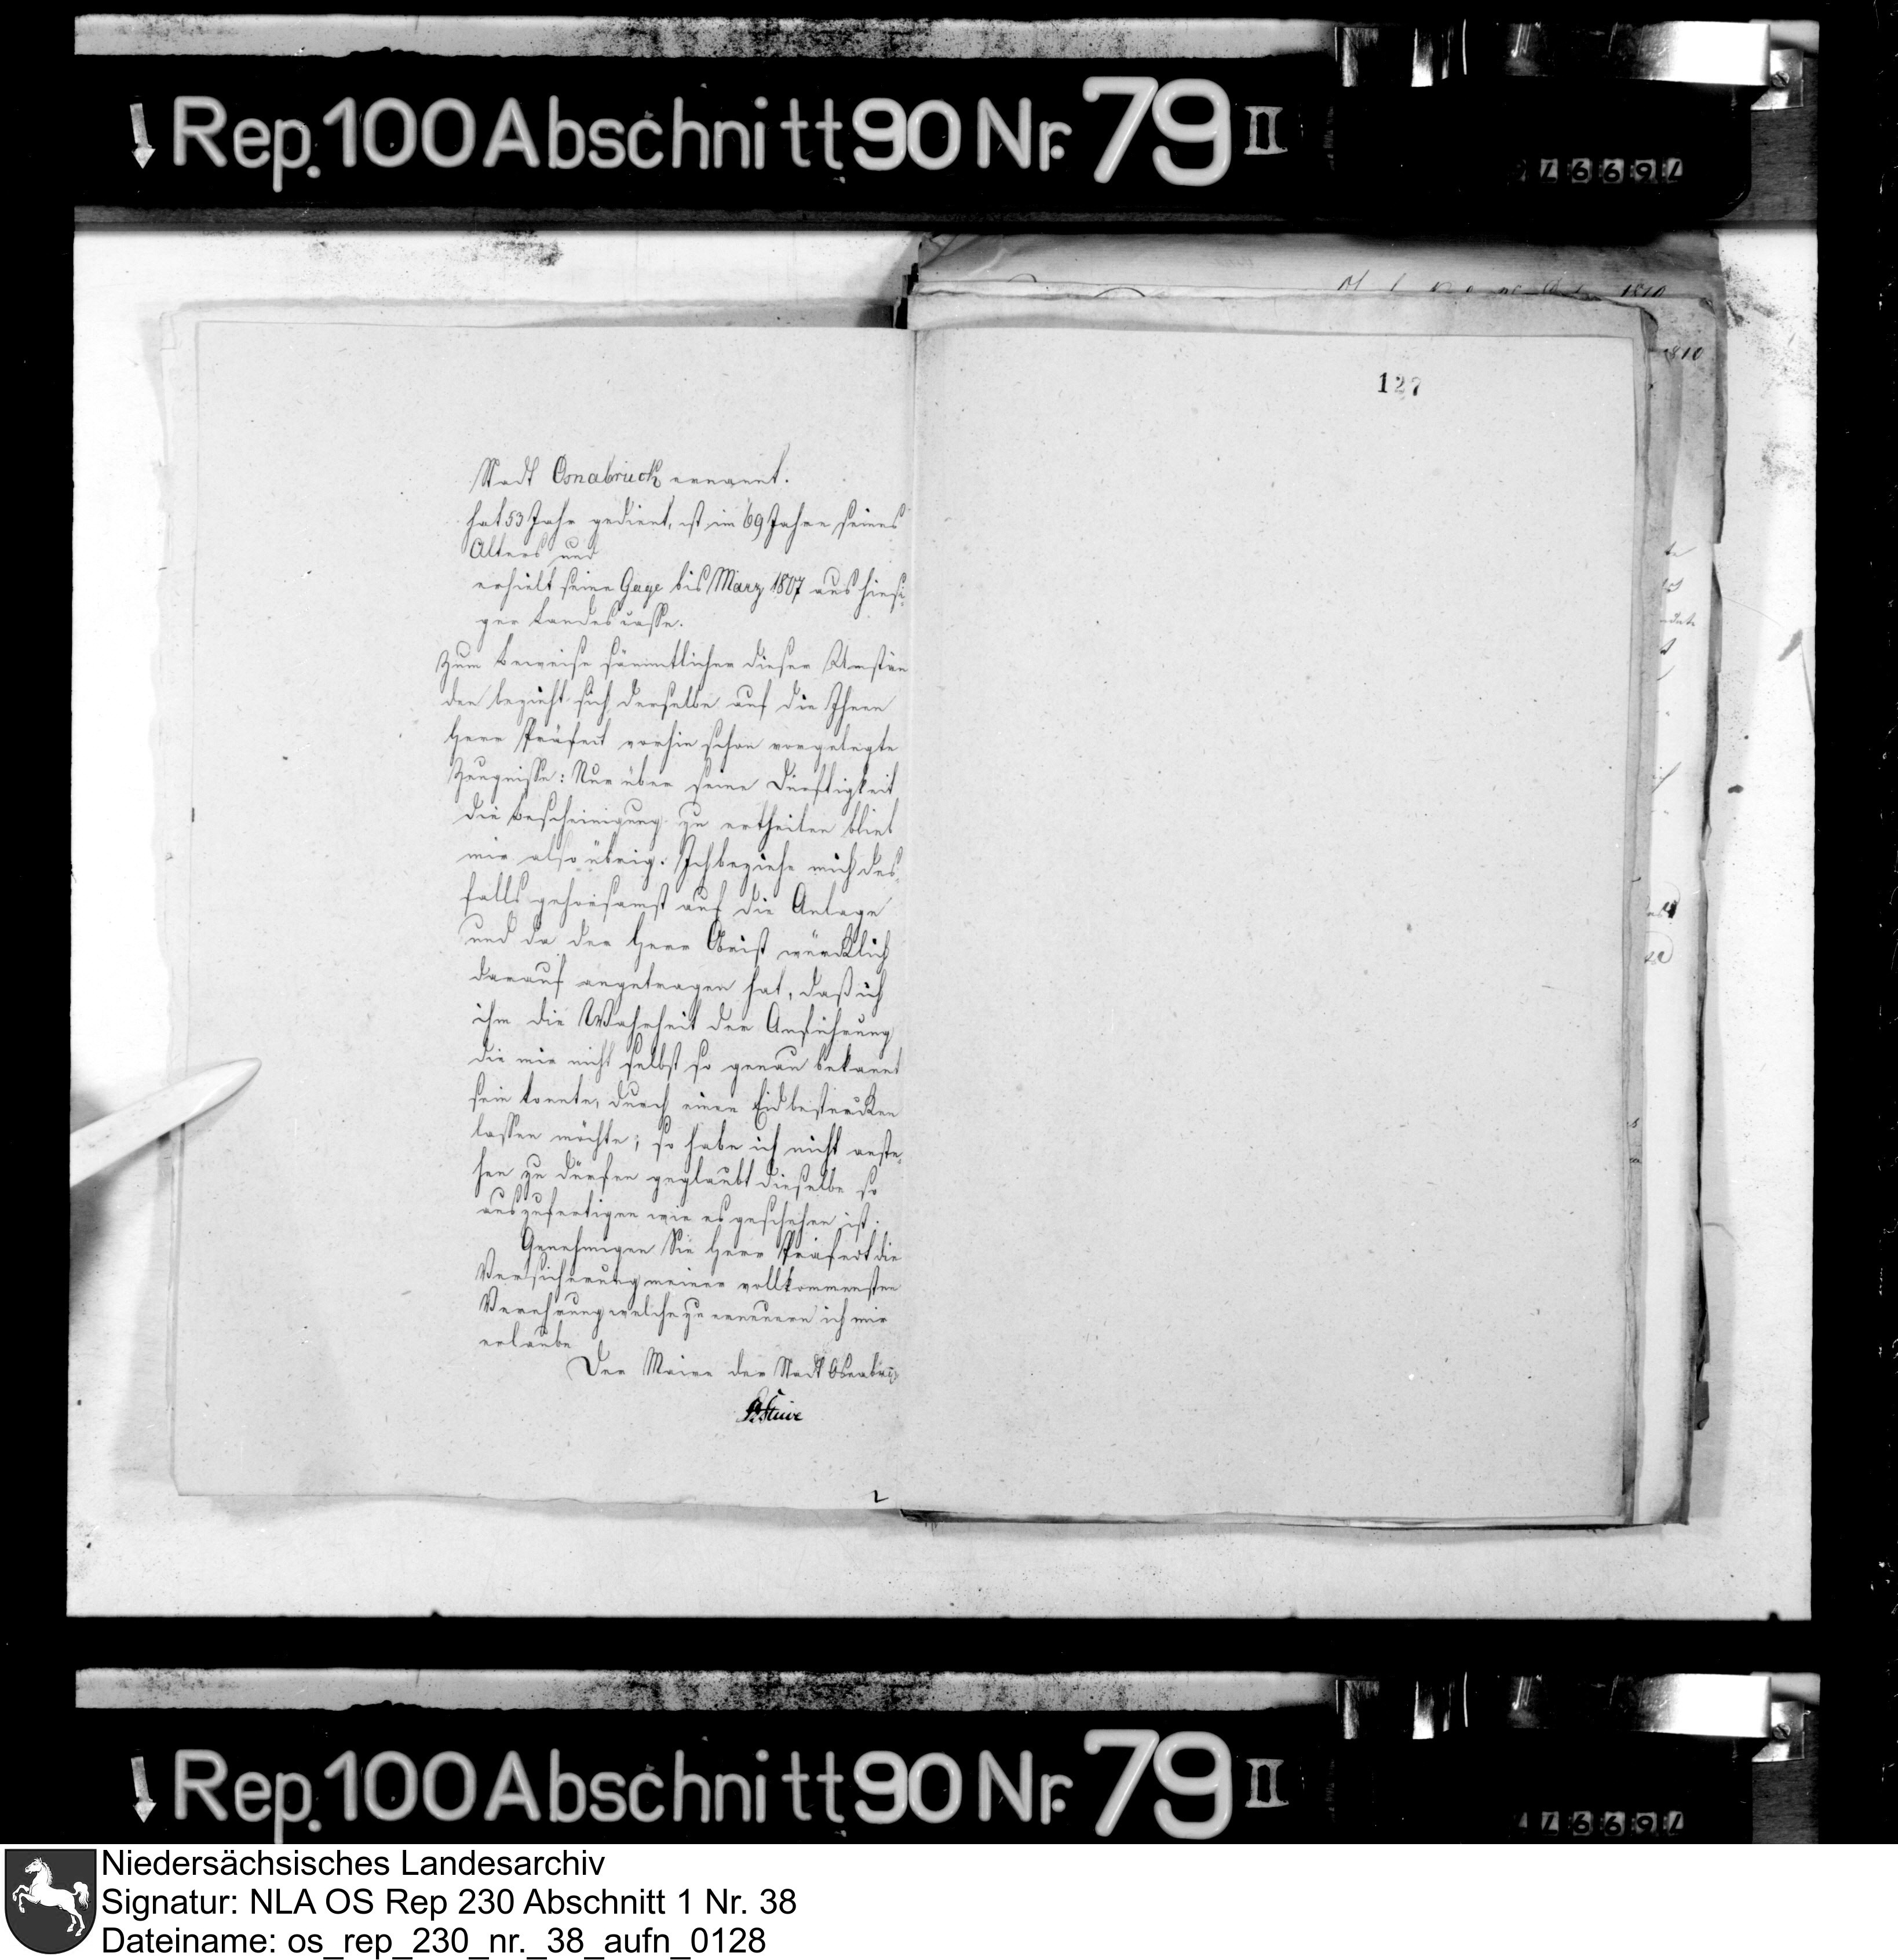 Rep. 100 Abschnitt 90 Nr. 79 II
76697
1810
810
127
Stadt Osnabruck ernannt.
hat 53 Jahr gedient, ist im 69 Jahre seines
Alters und
erhielt seine Gage bis März 1807 aus hiesi-
ger Landescasse.
Zum Beweise sämmtlicher dieser Umstän
den bezieht sich derselbe auf die Ihnen
Herr Präfect vorhin schon vorgelegte
Zeugnisse: Nur über seine Dürftigkeit
die Bescheinigung zu ertheilen blieb
mir also übrig. Ich beziehe mich des-
falls gehorsamst auf die Anlage
und da der Herr Obrist würcklich
darauf angetragen hat, daß ich
ihn die Wahrheit der Anführung
die mir nicht selbst so genau bekannt
sein konnte, durch einen Eid bestärcken
lassen möchte; so habe ich nicht anste-
hen zu dürfen geglaubt dieselbe so
auszufertigen wie es geschehen ist.
Genehmigen Sie Herr Präfect die
Versicherung meiner vollkommensten
Verehrung welche zu erneuern ich mir
erlaube
Der Maire der Stadt Osnabrück
Stüve
2
Rep. 100 Abschnitt 90 Nr. 79 II
76697
Niedersächsisches Landesarchiv
Signatur: NLA OS Rep 230 Abschnitt 1 Nr. 38
Dateiname: os_rep_230_nr._38_aufn_0128